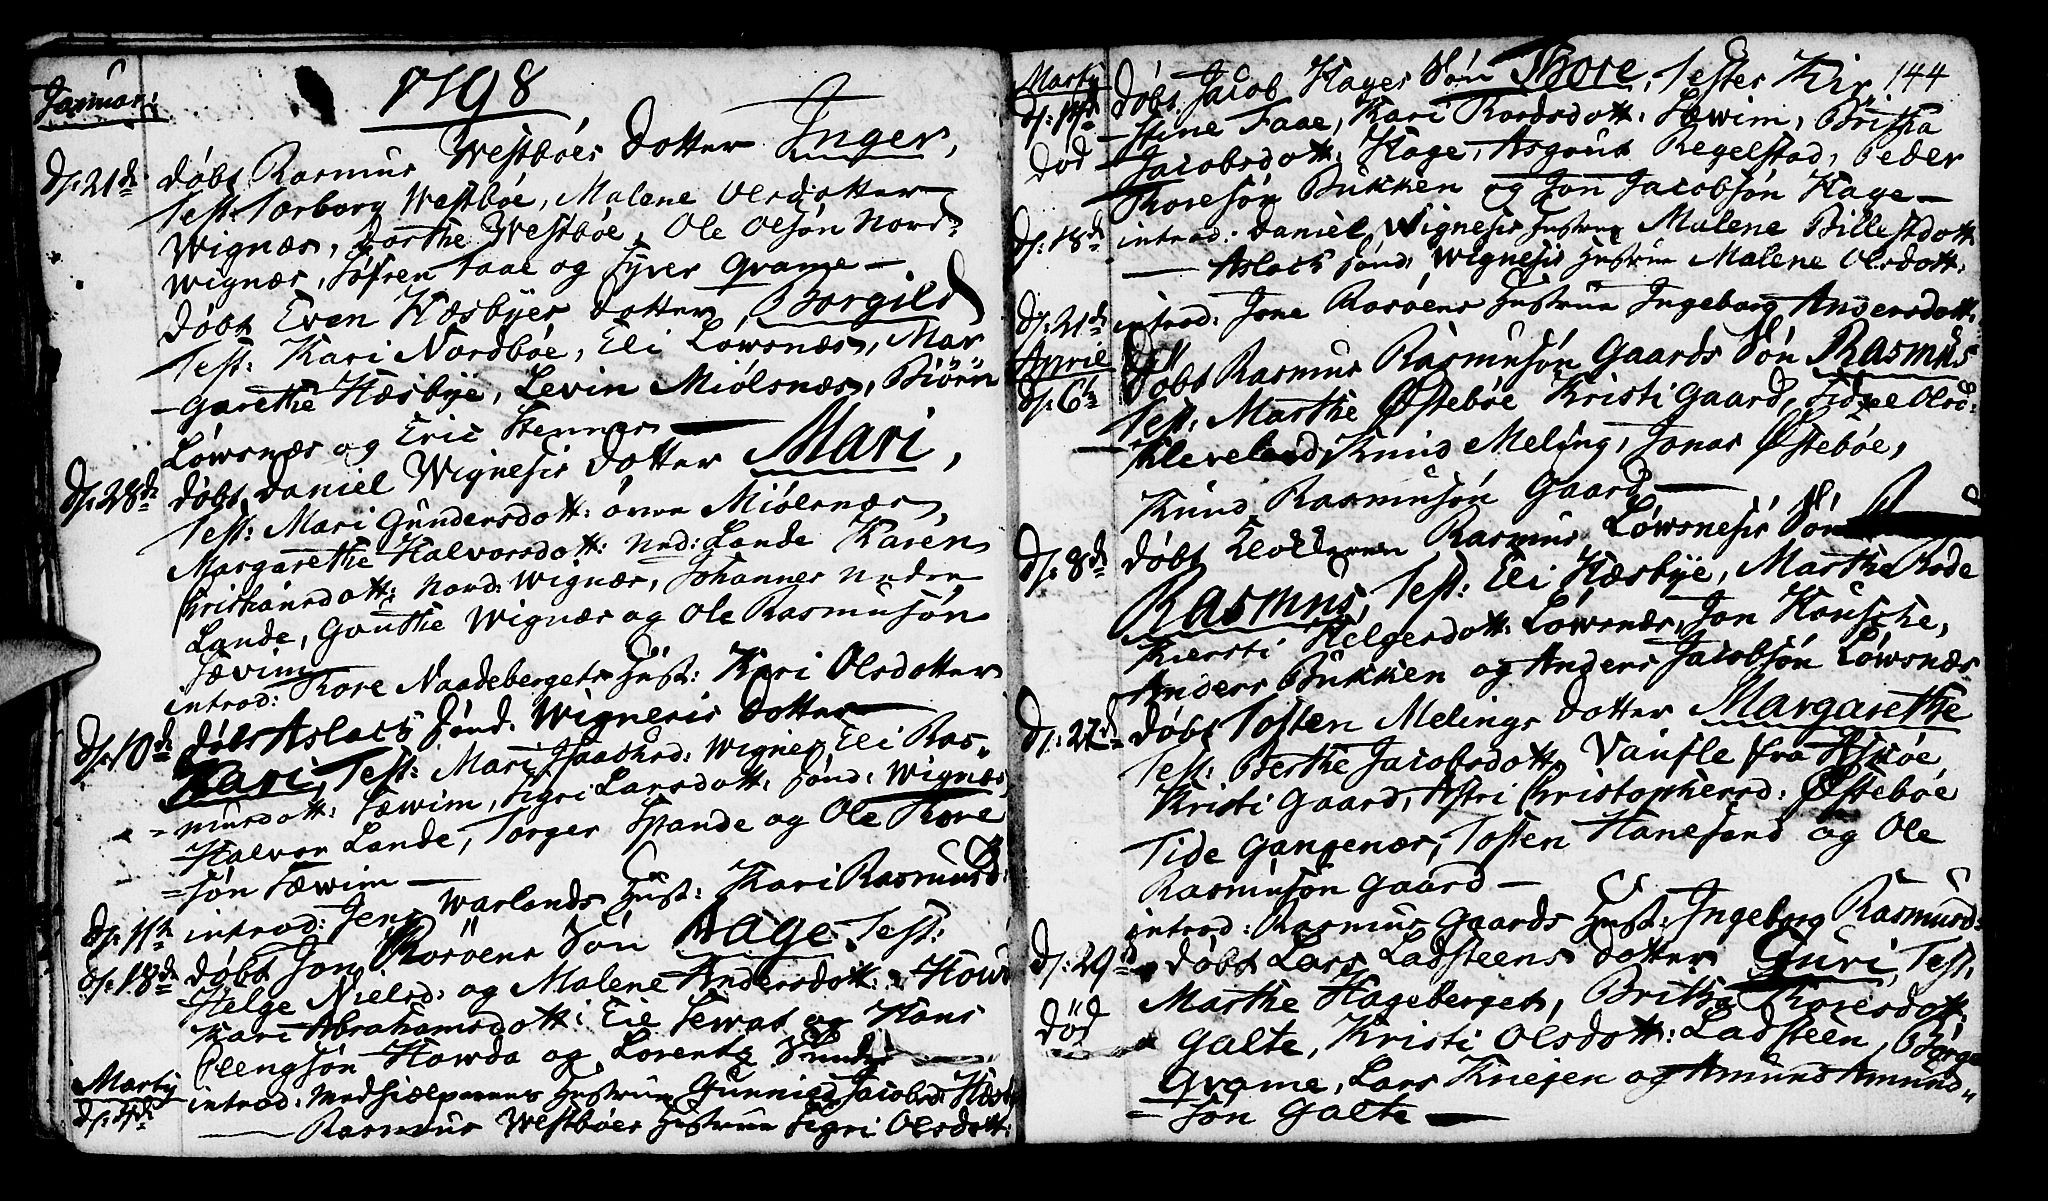 1798
Januari:
d: 21de døbt Rasmus Westbøes dotter Inger,
Test: Torborg Westbøe, Malene Olsdotter
Wignæs, Dorthe Westbøe, Ole Olsøn Nord=
wignæs, Søfren Faae og Syver Qvame —
døbt Even Hæsbyes dotter Borgild
Test: Kari Nordbøe, Eli Løwsnæs, Mar
-garethe Hæsbye, Levin Miølsnæs, Biørn
Løwsnæs og Eric Stennes —
d: 28de døbt Daniel Wignesis dotter Mari,
Test: Mari Gundersdott: Miølsnæs,
Margarethe Halvorsdott: ned: Lande Karen
Christiansdott: Nord: Wignæs, Johannes neden
Lande, Gouthe Wignæs og Ole Rasmusøn
Sævim
introd: Tore Naadebergets Hust: Kari Olsdotter
d: 10de døbt Aslach Sønd. Wignesis dotter
Kari, Test: Mari Isaachsd: Wignes Eli Ras=
=musdott: Sæwim, Sigri Larsdott: Sønd: Wignæs
Halvor Lande, Torger Spande og Ole Tore
=søn Sæwim —
d: 11te introd: Jens Warlands Hust: Kari Rasmusd:
d: 18de døbt Jon Rosøens Søn Aage, Test:
Helge Nielsd: og Malene Andersdott:
Kari Abrahamsdott: Eie Sewat og Hans
Clengsøn Howda og Lorentz
Martij
d: 4de introd: Medhielperens Hustrue Gunnild Jacobsd:
— Rasmus Westbøes Hustrue Sigri Olsdott:
144
Martij døbt Jacob Hages Søn Thore, Testes Kir
-stine Faae, Kari Tordsdott: Sæwim, Britha
død Jacobsdott: Hage, Asgout Regelstad, Peder
Toresøn Bukken og Jon Jacobsøn Hage —
d: 18de introd: Daniel Wignesis Hustrue Malene Billestdott
— Aslach Sønd: Wignesis Hustrue Malene Olsdott:
d: 21de introd: Jone Rosøens Hustrue Ingeborg Andersdott:
Aprie
d: 6te døbt Rasmus Rasmusøn Gaards Søn Rasmus
Test: Marthe Østebøe Kristi Gaard, Sidne Olsd:
Kleveland, Knud Meling, Jonas Østebøe,
Knud Rasmusøn Gaard —
d: 8de døbt Klokkeren Rasmus Løwsnesis Søn
Rasmus, Test: Eli Hæsbye, Marthe Rode
Kiersti Helgesdott: Løwsnæs, Jon Housche,
Anders Bukken og Anders Jacobsøn Løwsnæs
d: 22de døbt Tosten Melings dotter Margarethe
Test: Berthe Jacobsdott, Vaufle fra Askøe,
Kristi Gaard, Astri Christophersd: Østebøe
Tide Gangenæs, Tosten Hanesand og Ole
Rasmusøn Gaard —
introd: Rasmus Gaards Hust: Ingeborg Rasmusd:
d: 29de døbt Lars Ladsteens dotter Guri, Test:
død Marthe Hageberget, Britha Toresdott:
Galte, Kristi Olsdott: Ladsteen, Børge
Qvame, Lars Kniejen og Amund Amund=
=søn Galte —